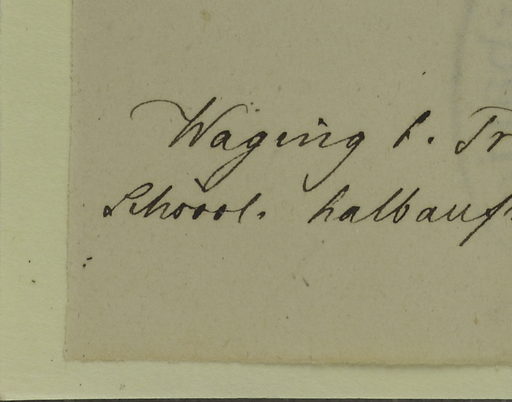 Waging b. Tr
Schoool. halbauf